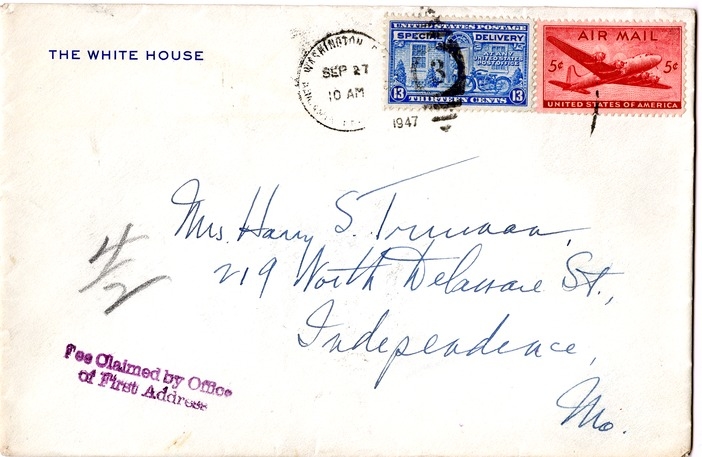 THE WHITE HOUSE
WASHINGTON
SEP 27
10 AM
1947
UNITED STATES POSTAGE
SPECIAL DELIVERY
AT ANY
UNITED STATES
POST OFFICE
13 THIRTEEN CENTS 13
AIR MAIL
5¢ 5¢
UNITED STATES OF AMERICA
Mrs. Harry S. Truman,
219 North Delaware St.,
Independence,
Mo.
4/2
Fee Claimed by Office
of First Address